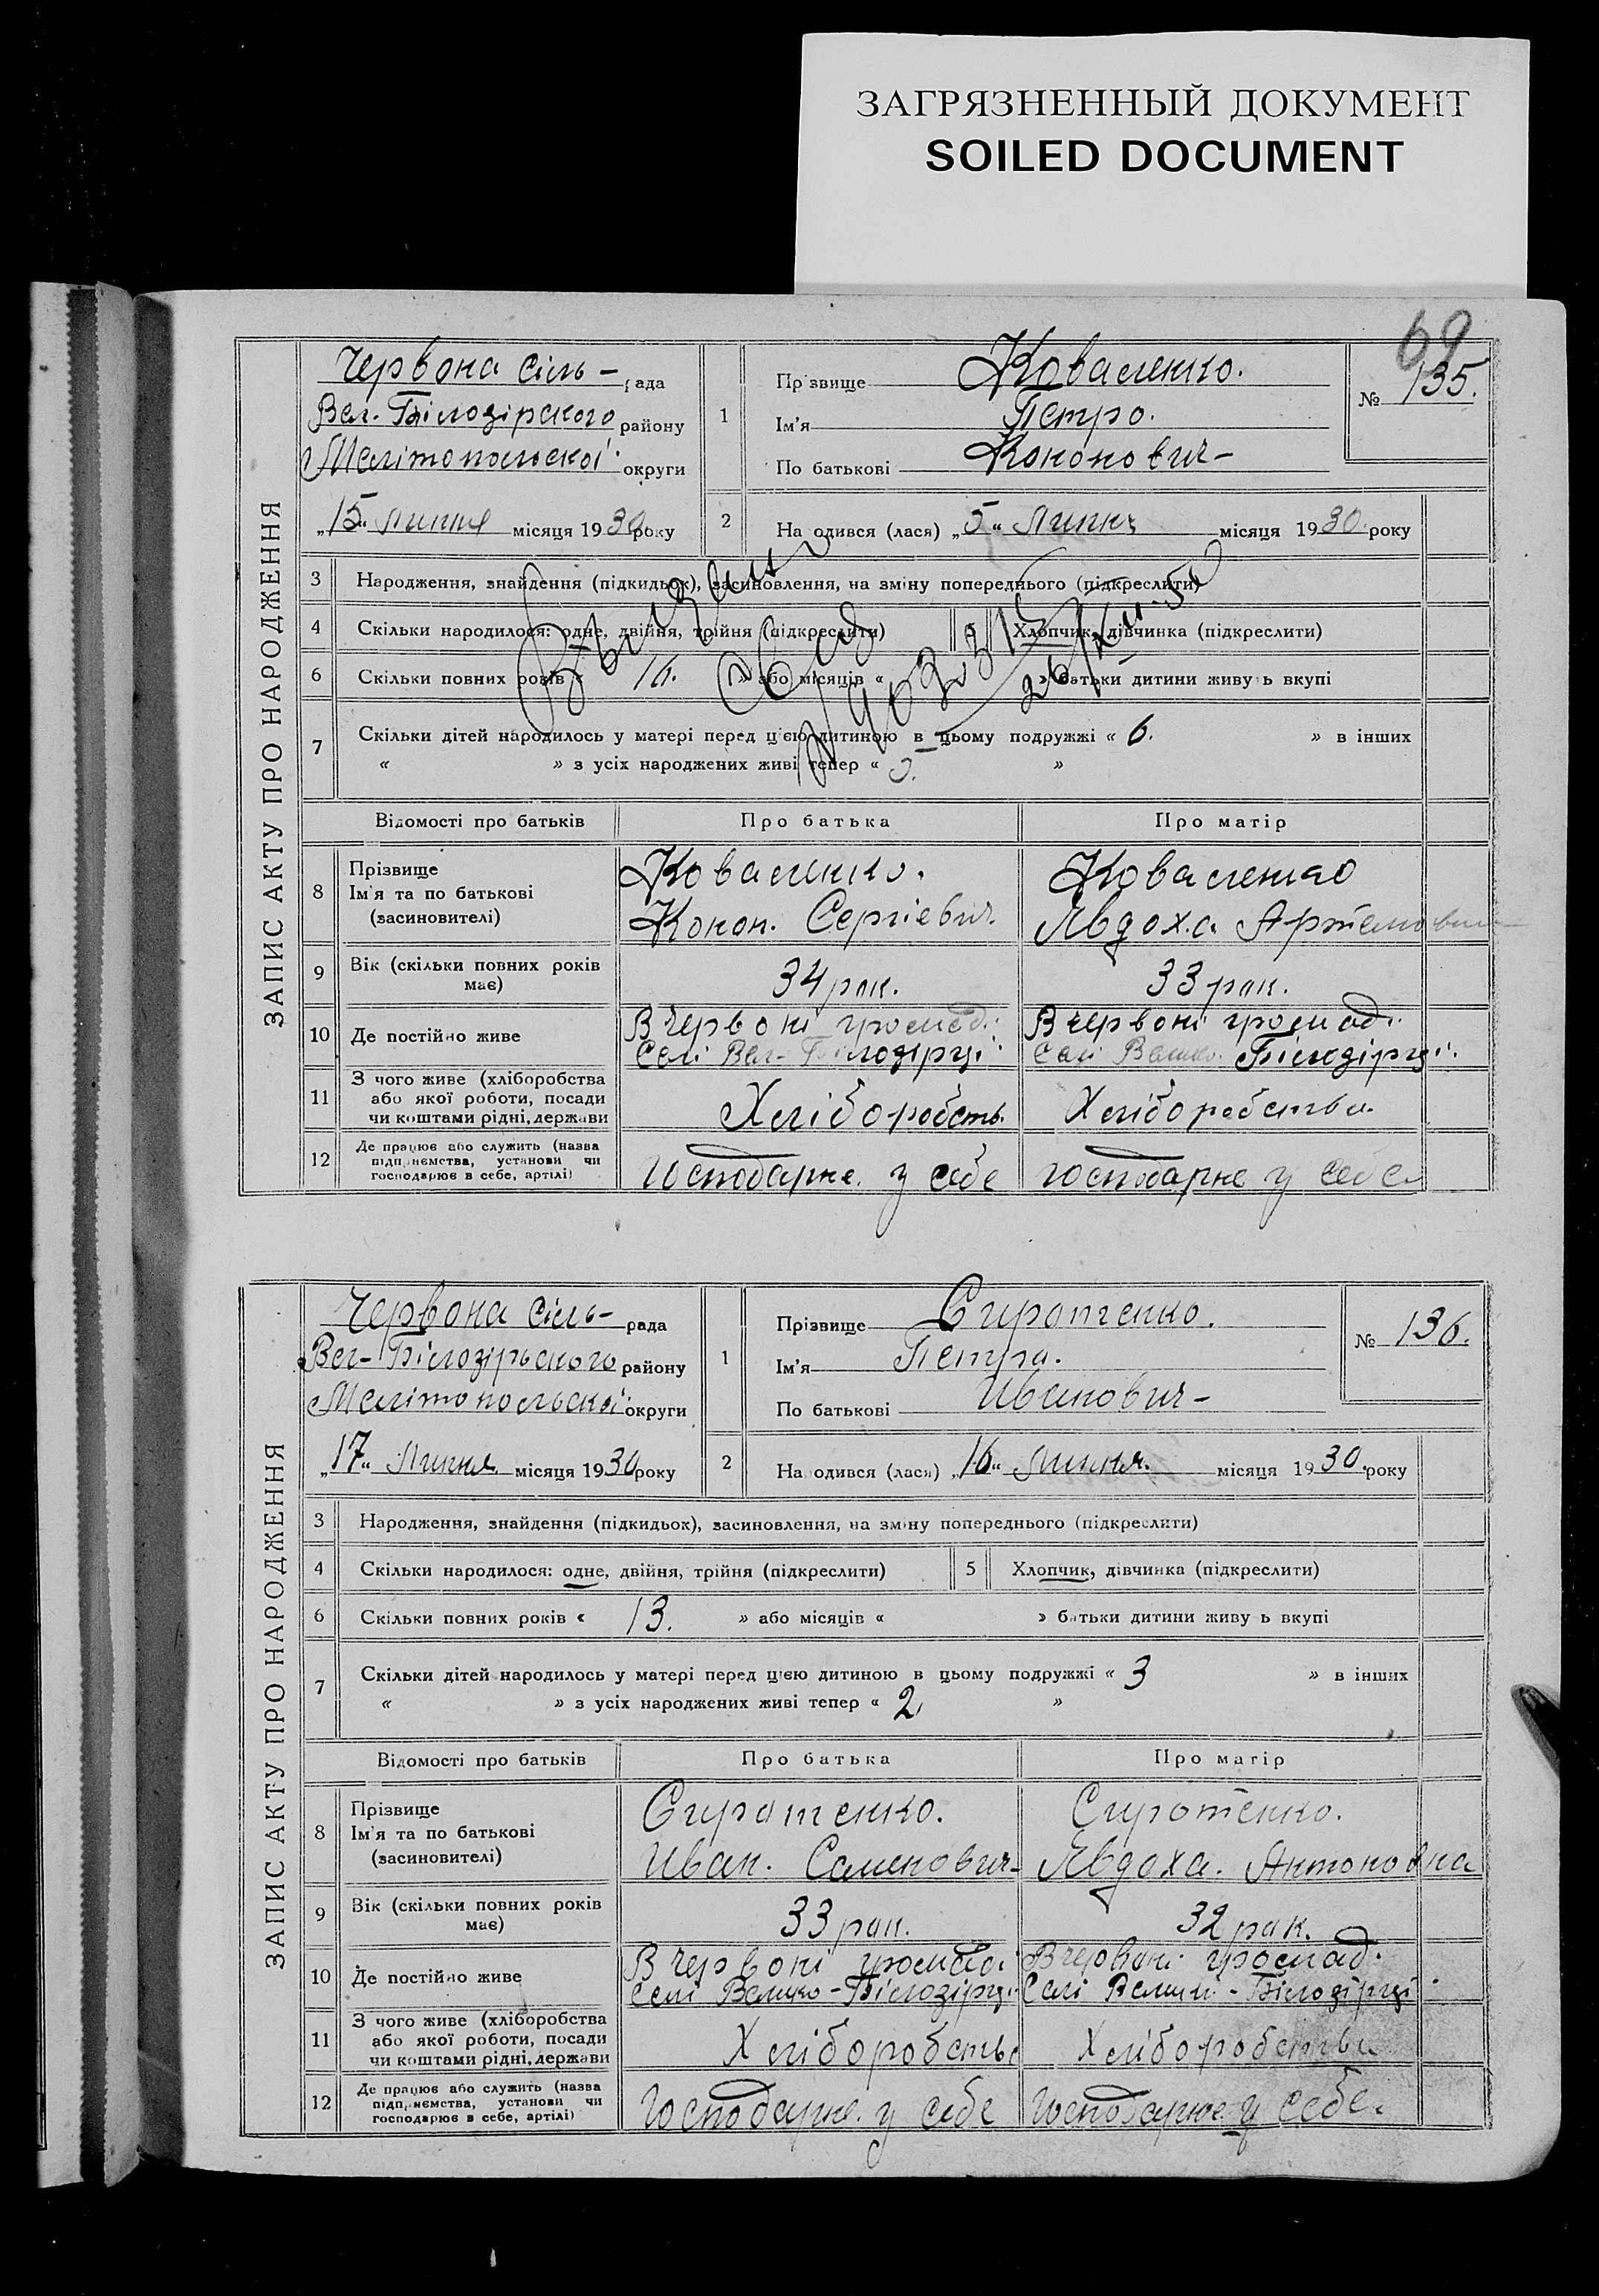 ЗАГРЯЗНЕННЫЙ ДОКУМЕНТ
SOILED DOCUMENT
69
ЗАПИС АКТУ ПРО НАРОДЖЕННЯ
Червона сіль- рада
Вел. Білозірского району
Мелітопольскої округи
„15“ Липня місяця 1930 року
1
Прізвище Коваленко.
Ім'я Петро.
По батькові Кононович-
№ 135.
2
На одився (лася) „5“ Липня місяця 1930 року
3 Народження, знайдення (підкидьок), засиновлення, на зміну попереднього (підкреслити)
4 Скільки народилося: одне, двійня, трійня (підкреслити) 5 Хлопчик, дівчинка (підкреслити)
6 Скільки повних років « 16. » або місяців « » батьки дитини живуть вкупі
7 Скільки дітей народилось у матері перед цією дитиною в цьому подружжі « 6. » в інших
« » з усіх народжених живі тепер « 5. »
Відомості про батьків Про батька Про матір
8 Прізвище
Ім'я та по батькові
(засиновителі)
Коваленко.
Конон. Сергіевич.
Коваленко
Явдоха Артемовна
9 Вік (скільки повних років має)
34 рок. 33 рок.
10 Де постійно живе
В Червоні громаді
Селі Вел- Білозірці
В червоні громаді
Селі Велико Білозірці
11 З чого живе (хліборобства
або якої роботи, посади
чи коштами рідні, держави
Хліборобств. Хліборобства
12 Де працює або служить (назва
підприємства, установи чи
господарює в себе, артілі)
Господарне. у себе господарне у себе
ЗАПИС АКТУ ПРО НАРОДЖЕННЯ
Червона сіль- рада
Вел- Білозірьского району
Мелітопольскої округи
„17“ Липня місяця 1930 року
1
Прізвище Сиротенко.
Ім'я Петро.
По батькові Иванович-
№ 136.
2
На одився (лася) „16“ липня. місяця 1930. року
3 Народження, знайдення (підкидьок), засиновлення, на зміну попереднього (підкреслити)
4 Скільки народилося: одне, двійня, трійня (підкреслити) 5 Хлопчик, дівчинка (підкреслити)
6 Скільки повних років « 13. » або місяців « » батьки дитини живу ь вкупі
7 Скільки дітей народилось у матері перед цією дитиною в цьому подружжі « 3 » в інших
« » з усіх народжених живі тепер « 2, »
Відомості про батьків Про батька Про матір
8 Прізвище
Ім'я та по батькові
(засиновителі)
Сиротенко.
Иван. Семенович-
Сиротенко.
Явдоха. Антоновна
9 Вік (скільки повних років має)
33 рок. 32 рок.
10 Де постійно живе
В Червоні громаді
Селі Велико-Білозірці
В червоні громад.
Селі Велики-Білозірці
11 З чого живе (хліборобства
або якої роботи, посади
чи коштами рідні, держави
Хліборобство Хліборобства
12 Де працює або служить (назва
підприємства, установи чи
господарює в себе, артілі)
Господарне. у себе Господарює у себе.